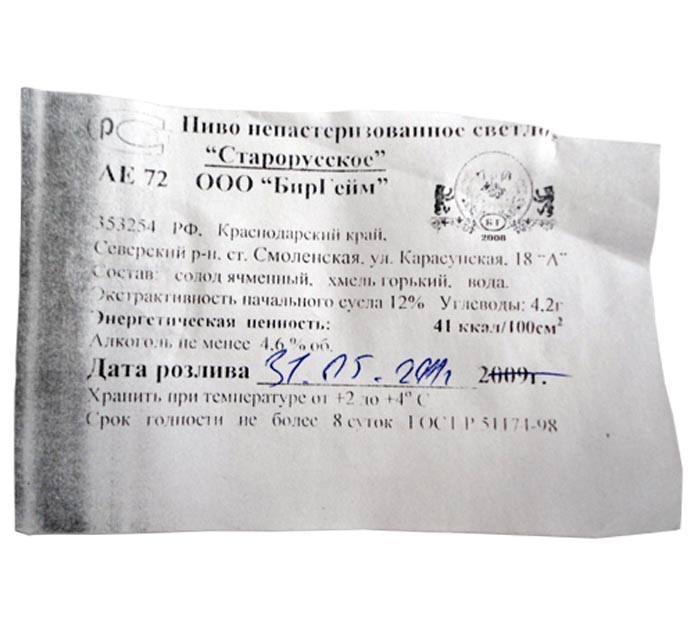 РС Пиво непастеризованное светлое
"Старорусское"
АЕ 72 ООО "БирГейм"
БГ
2008
353254 РФ, Краснодарский край,
Северский р-н, ст. Смоленская, ул. Карасунская, 18 "А"
Состав: солод ячменный, хмель горький, вода.
Экстрактивность начального сусла 12% Углеводы: 4,2г
Энергетическая ценность: 41 ккал/100см²
Алкоголь не менее 4,6 % об.
Дата розлива 31.05.2011г 2009г.
Хранить при температуре от +2 до +4° С
Срок годности не более 8 суток ГОСТ Р 51174-98